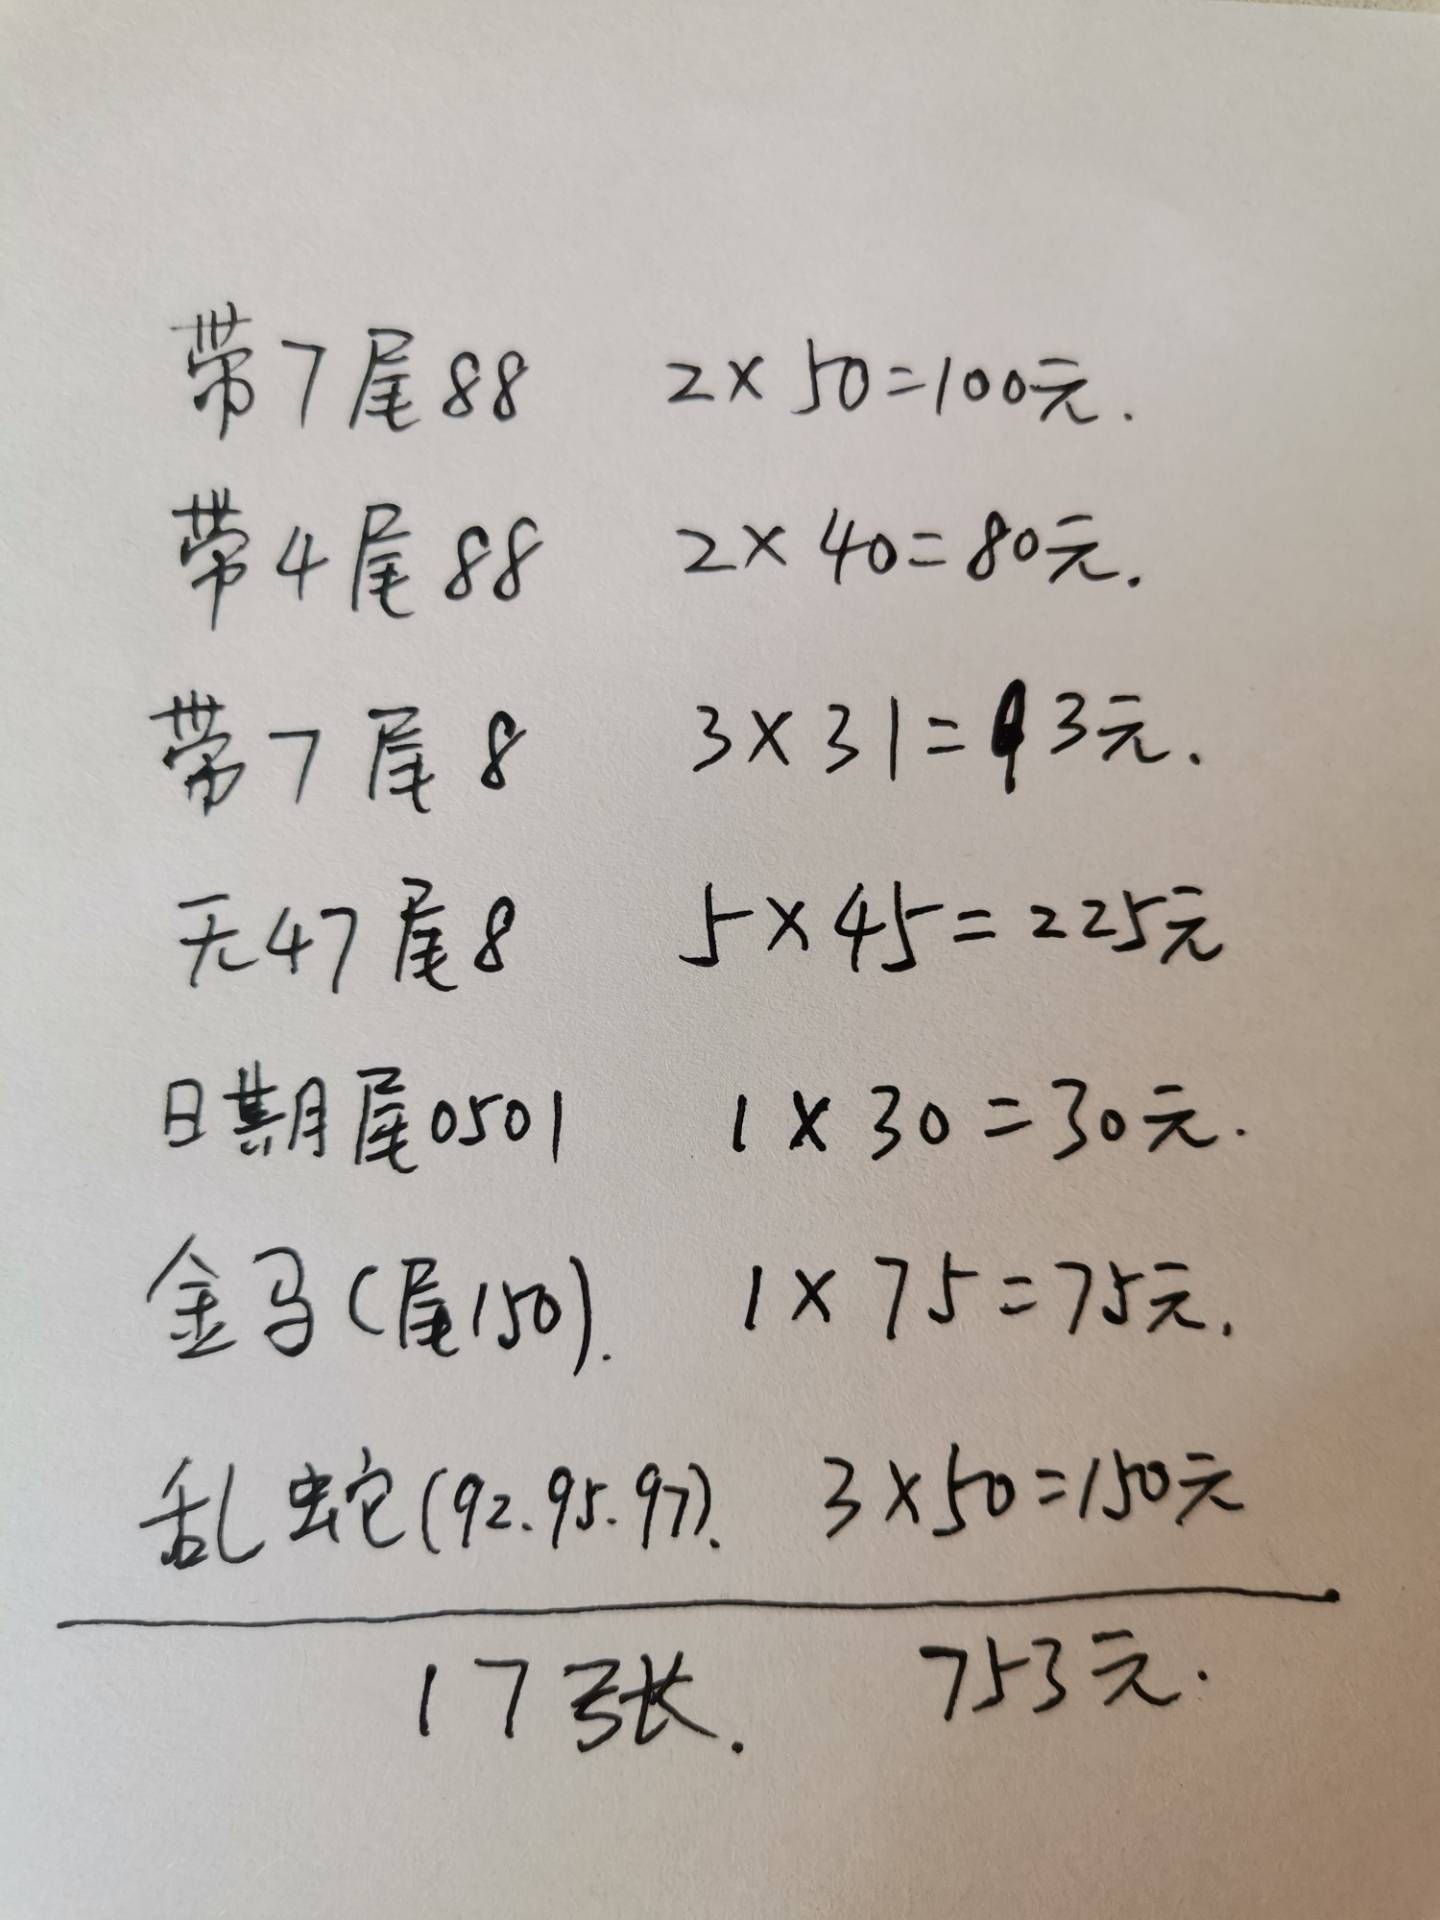 带7尾88 2×50=100元.
带4尾88 2×40=80元.
带7尾8 3×31=93元.
无47尾8 5×45=225元
日期尾0501 1×30=30元.
金马(尾150). 1×75=75元.
乱蛇(92.95.97). 3×50=150元
17张. 753元.